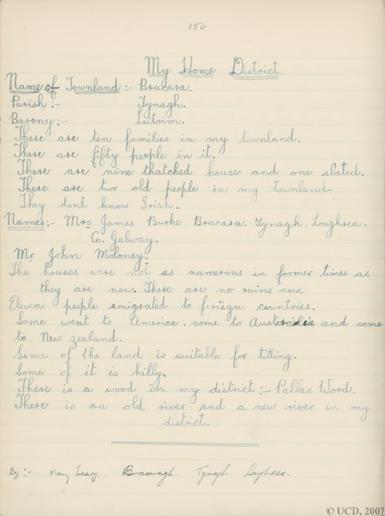 150
My Home District.
Name of Townland :- Bracara.
Parish :- Tynagh.
Barony :- Leitrim.
There are ten families in my townland.
There are fifty people in it.
There are nine thatched houses and one slated.
There are two old people in my townland.
They dont know Irish.
Names :- Mrs James Burke, Bracara, Tynagh, Loughrea.
Co. Galway.
Mr John Moloney.
The houses were not as numerous in former times as
they are now. There are no ruins now.
Eleven people emigrated to foreign countries.
Some went to America, some to Australia and some
to New zealand.
Some of the land is suitable for tilling.
Some of it is hilly.
There is a wood in my district :- Pallas Wood.
There is an old river and a new river in my
district.
By :- Mary Tynagh Loughrea.
© UCD, 2007